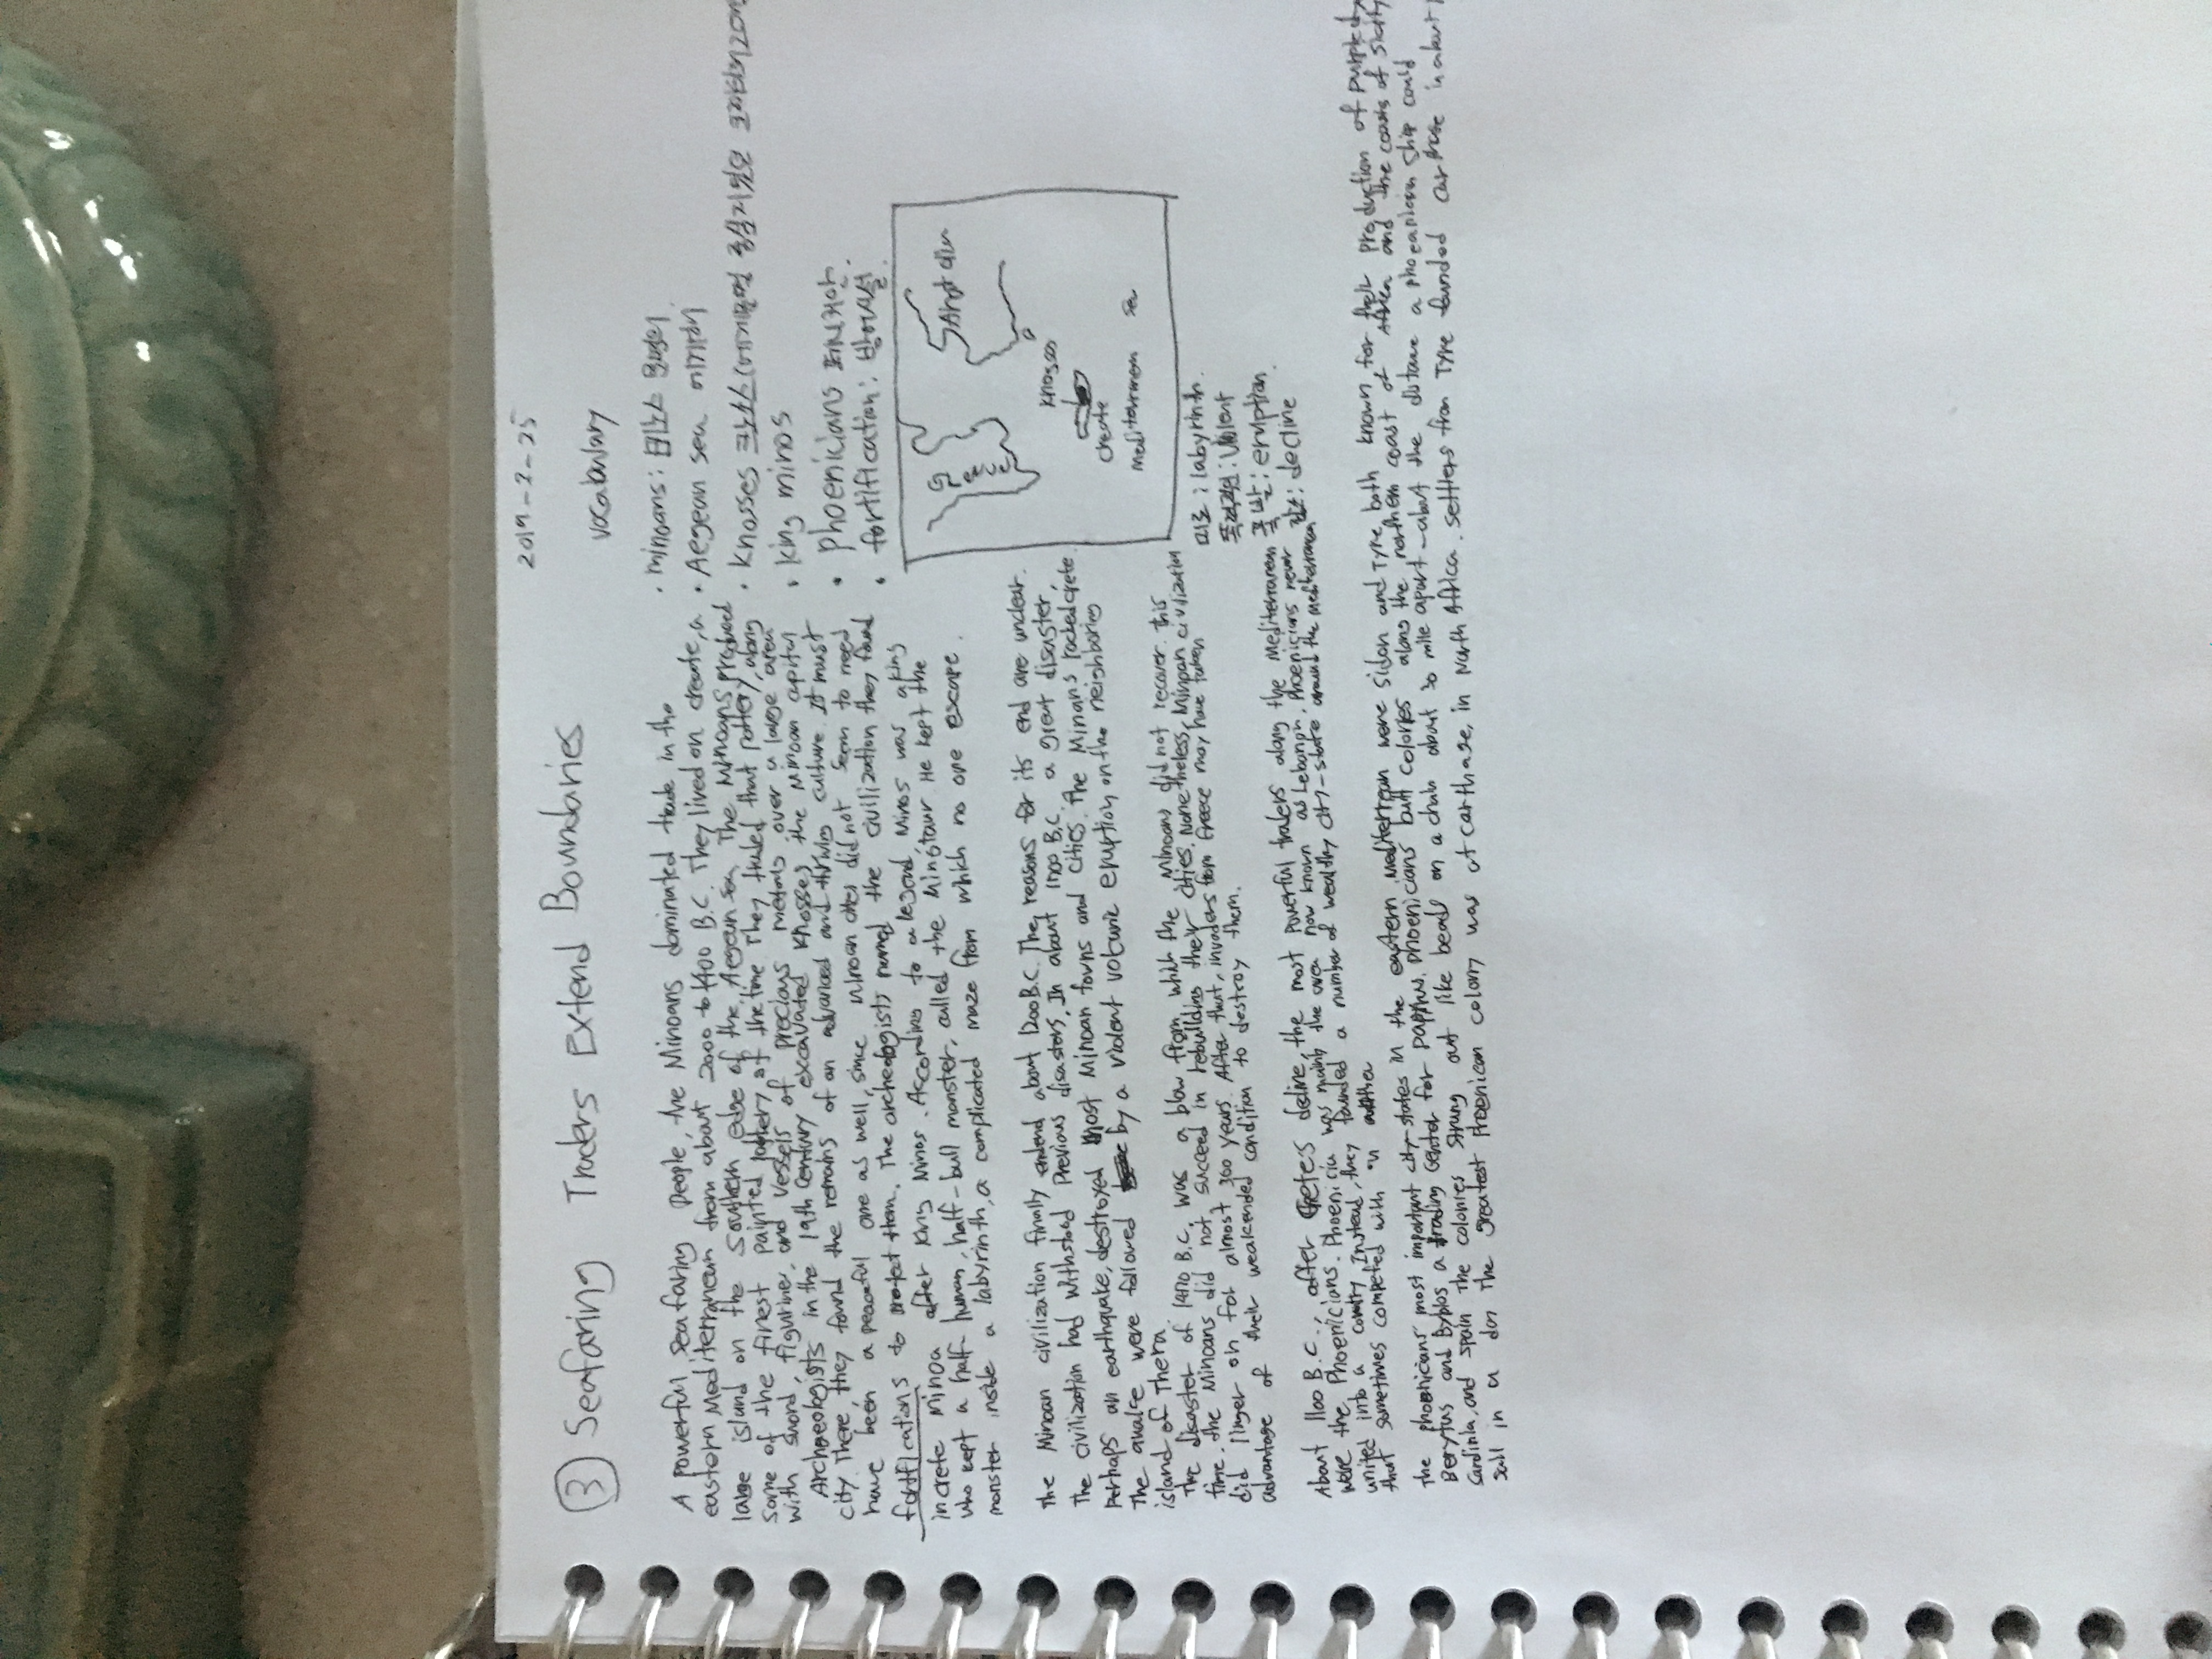 2019-2-25
③ Seafaring Traders Extend Boundaries
vocabulary
A powerful seafaring people, the Minoans dominated trade in the
eastern Mediterranean from about 2000 to 1400 B.C. They lived on create, a
large island on the Southern edge of the Aegean sea. The Minoans produced
some of the finest painted pottery of the time They traded that pottery, along
with sword, figurine, and vessels of precious metals over a large area
Archaeologists in the 19th century excavated Knosses, the Minoan capital
city. There, they found the remains of an advanced and thriving culture. It must
have been a peaceful one as well, since Minoan cities did not seem to need
fortifications to protect them. The archeologists named the civilization they found
in crete Minoa after King Minos. According to a legend, Minos was a king
who kept a half-human, half-bull monster, called the Minotaur He kept the
monster inside a labyrinth, a complicated maze from which no one escape.
The Minoan civilization finally ended about 1200 B.C. The reasons for its end are unclear.
The civilization had withstood previous disasters. In about 1700 B.C. a great disaster,
Perhaps an earthquake, destroyed most Minoan towns and cities. The Minoans rebuilt crete.
The quake were followed by a violent volcanic eruption on the neighboring
island of Thera
The disaster of 1470 B.C. was a blow from which the Minoans did not recover. This
time, the Minoans did not succeed in rebuilding their cities. Nonetheless, Minoan civilization
did linger on for almost 300 years. After that, invaders from Greece may have taken
advantage of their weakened condition to destroy them.
About 1100 B.C., after Cretes decline, the most powerful traders along the Mediterranean
were the Phoenicians. Phoenicia was mainly the area now known as Lebanon. Phoenicians never
united into a country Instead, they founded a number of wealthy city-state around the mediterranean
that sometimes competed with
The phoenicians' most important city-states in the eastern mediterrean were Sidon and Tyre both known for their production of purple dy
Berytus and Byblos a trading center for papyrus. phoenicians built colonies along the northern coast of Africa and the coasts of Sicily
Sardinia, and Spain the colonies strung out like beads on a chain about 30 mile apart - about the distance a phoenician ship could
sail in a day the greatest Phoenican colony was at carthage, in North Africa. settlers from Tyre founded carthage in about
· minoans: 미노스 문명의
· Aegean sea 에게해
· Knosses 크노소스 (에게문명 중심지였던
· king minos
· phoenicians 페니키아
· fortification: 방어시설.
Greece
Anatolia
Knosses
create
Mediterranean Sea
미로: labyrinth.
폭력적인: violent
폭발: eruption.
감소: decline